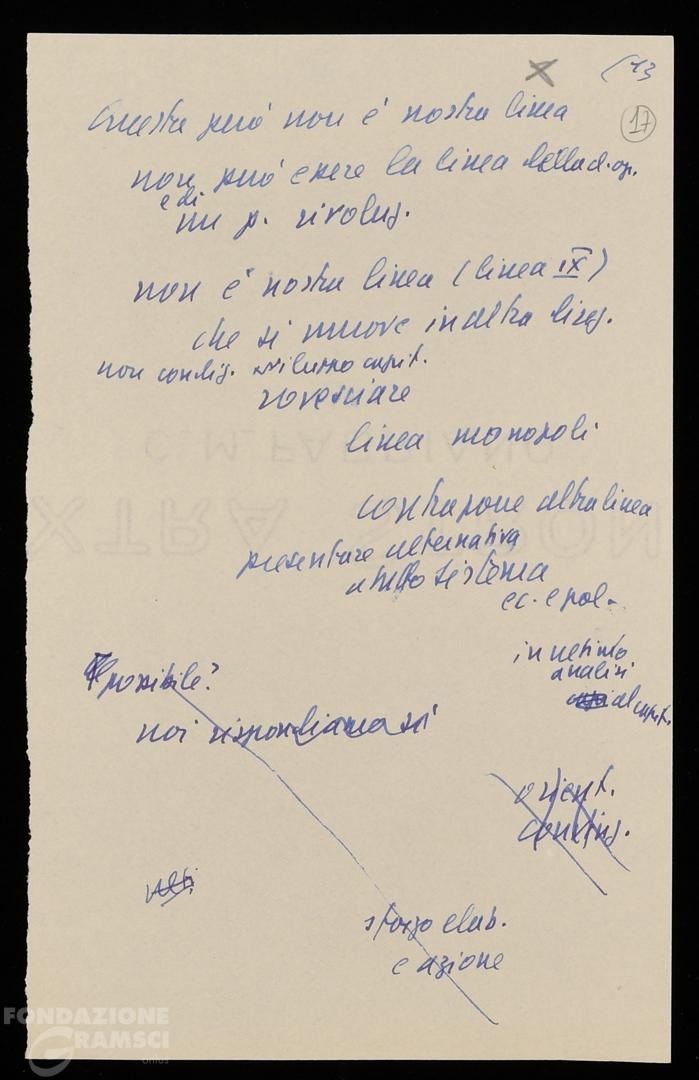 (13
17
Questa però non è nostra linea
non può essere la linea della cl. op.
e di
un p. rivoluz.
non è nostra linea (linea IX)
che si muove in altra direz.
non contig. sviluppo capit.
rovesciare
linea monopoli
contrapone altra linea
presentare alternativa
a tutto sistema
ec. e pol.
in ultima
analisi
al capit.
È possibile?
noi rispondiamo sì
orient.
contin.
sforzo elab.
e azione
C. M. FABRIANO
EXTRA STRONG
FONDAZIONE
GRAMSCI
onlus